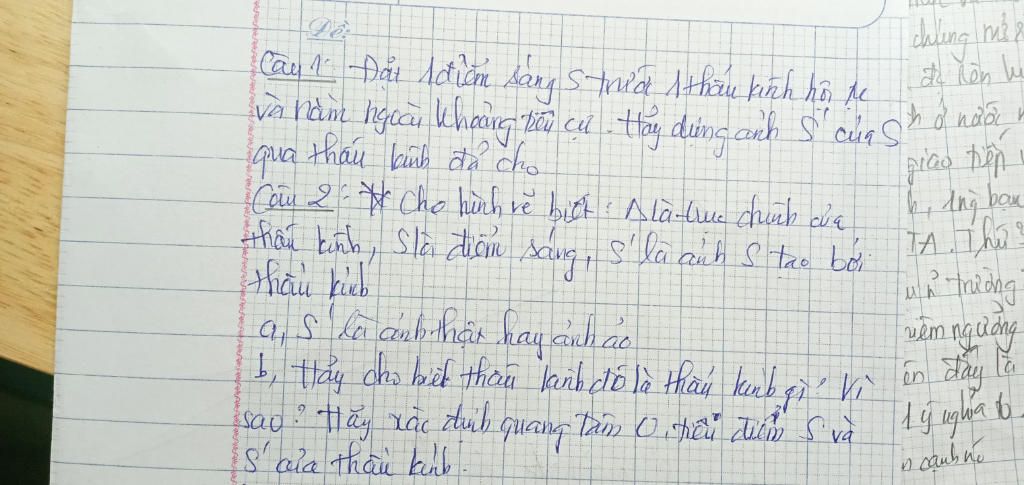 Đề:
Câu 1: Đặt 1 điểm sáng S trước 1 thấu kính hội tụ
và nằm ngoài khoảng tiêu cự. Hãy dựng ảnh S' của S
qua thấu kính đã cho
Câu 2: Cho hình vẽ biết: Δ là trục chính của
thấu kính, S là điểm sáng, S' là ảnh S tạo bởi
thấu kính
a, S' là ảnh thật hay ảnh ảo
b, Hãy cho biết thấu kính đó là thấu kính gì? Vì
sao? Hãy xác định quang tâm O, tiêu điểm S và
S' của thấu kính.
chúng
ở nước
giao tiếp
TA. Thứ
trường
ngưỡng
đây là
1 ý nghĩa